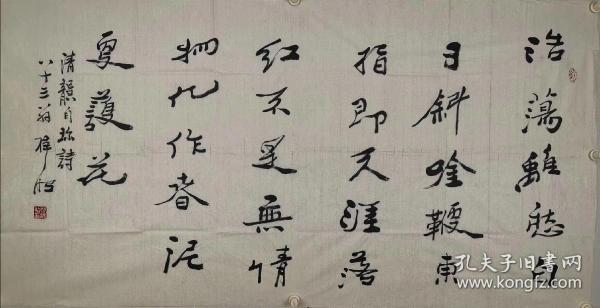 浩蕩離愁白
日斜吟鞭東
指即天涯落
紅不是無情
物化作春泥
更護花
清龔自珍詩
八十三翁
孔夫子旧书网
www.kongfz.com